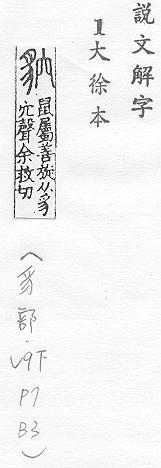 説文解字
1大徐本
貁
鼠屬善旋从豸
穴聲余救切
（豸部.v9下 P7 B3）